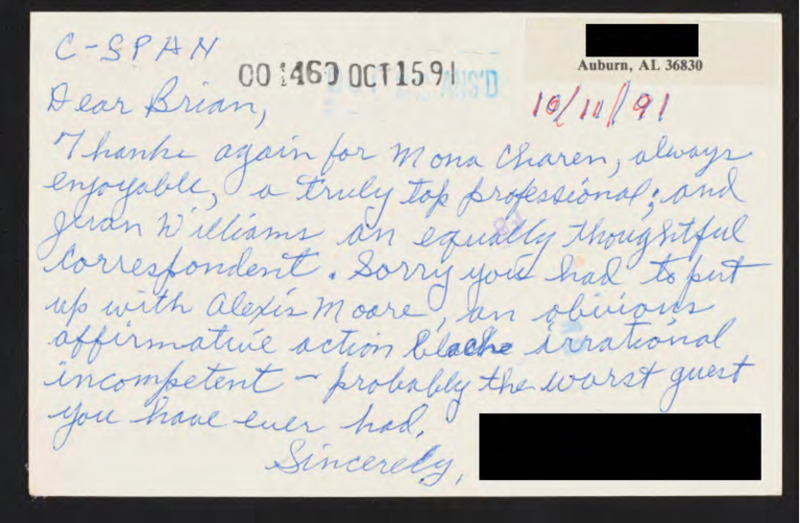 C-SPAN
001460 OCT 15 91
ANS'D
Auburn, AL 36830
10/11/91
Dear Brian,
Thanks again for Mona Charen, always
enjoyable, a truly top professional; and
Juan Williams an equally thoughtful
correspondent. Sorry you had to put
up with Alexis Moore, an obvious
affirmative action black irrational
incompetent - probably the worst guest
you have ever had.
Sincerely,